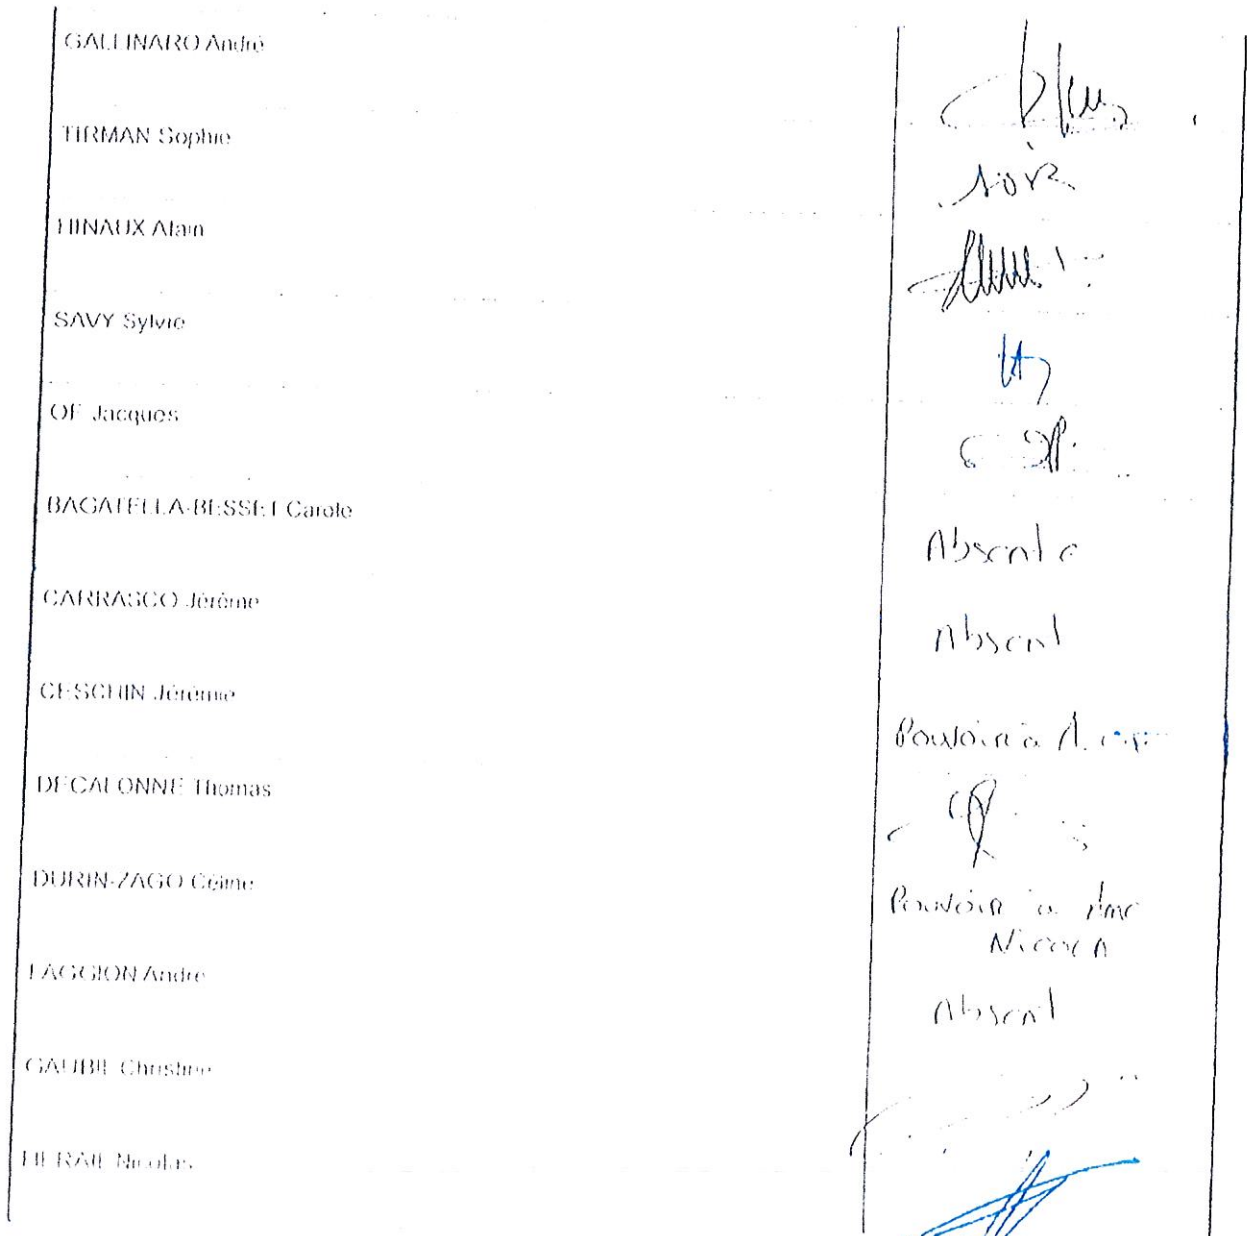 GALLINARO André
TIRMAN Sophie
HINAUX Alain
SAVY Sylvie
OF Jacques
BAGATELLA-BESSET Carole
Absente
CARRASCO Jérôme
Absent
CESCHIN Jérémie
Pouvoir à
DECALONNE Thomas
DURIN-ZAGO Céline
Pouvoir à Mme
FAGGION André
Absent
GAUBIL Christine
HERAIL Nicolas